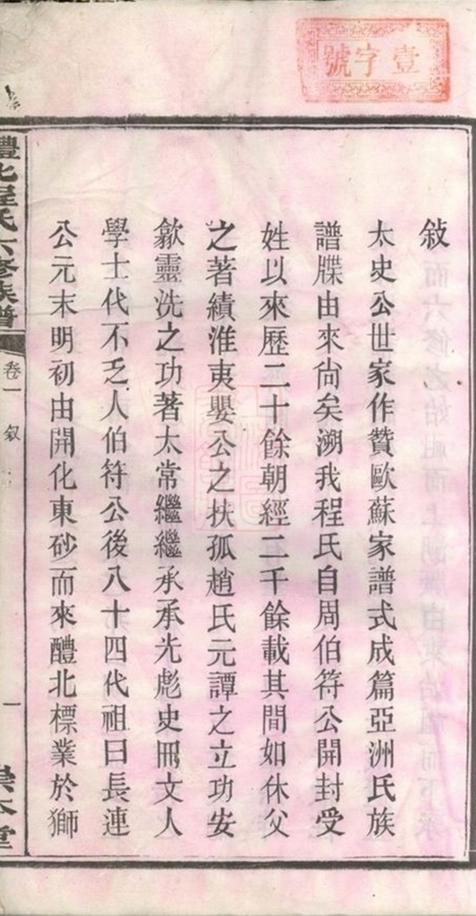 壹字號
敍
太史公世家作贊歐蘇家譜式成篇亞洲氏族
譜牒由來尙矣溯我程氏自周伯符公開封受
姓以來歷二十餘朝經二千餘載其間如休父
之著績淮夷嬰公之扶孤趙氏元譚之立功安
歙靈洗之功著太常繼繼承承光彪史冊文人
學士代不乏人伯符公後八十四代祖曰長連
公元末明初由開化東砂而來醴北標業於獅
醴北程氏六修族譜
卷一 敍
一
崇本堂